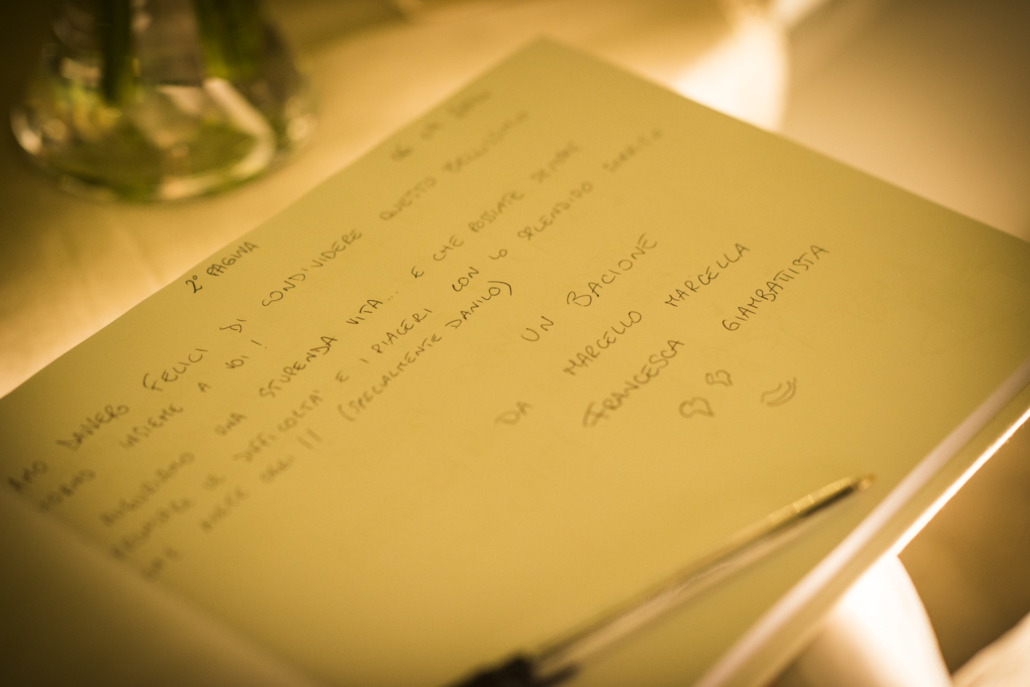 2° PAGINA
DAVVERO FELICI DI CONDIVIDERE QUESTO BELLISSIMO
INSIEME A VOI!
AUGURIAMO UNA STUPENDA VITA... E CHE POSSIATE SEMPRE
LE DIFFICOLTA' E I PIACERI CON LO SPLENDIDO SPIRITO
OGGI!! (SPECIALMENTE DANILO)
UN BACIONE
DA MARCELLO MARCELLA
FRANCESCA GIAMBATTISTA